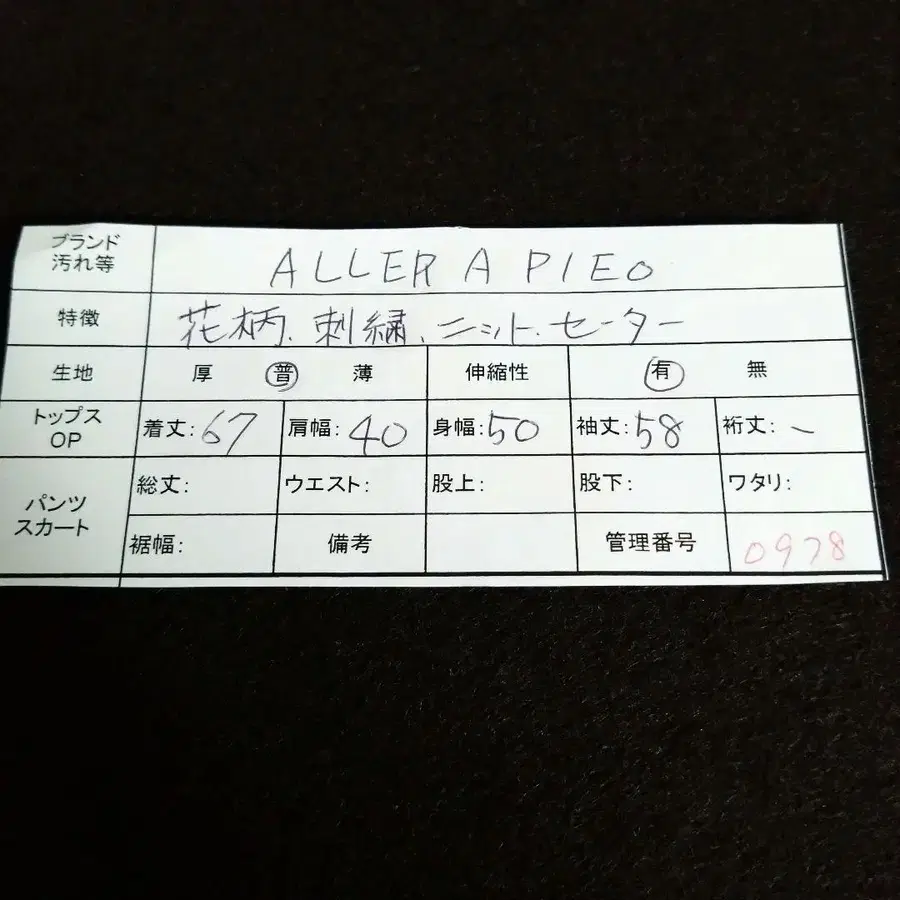 ブランド
汚れ等
ALLER A PIEO
特徴
花柄、刺繍、ニット、セーター
生地 厚 普 薄 伸縮性 有 無
トップス
OP
着丈:67 肩幅:40 身幅:50 袖丈:58 裄丈:-
パンツ
スカート
総丈: ウエスト: 股上: 股下: ワタリ:
裾幅: 備考 管理番号 0978